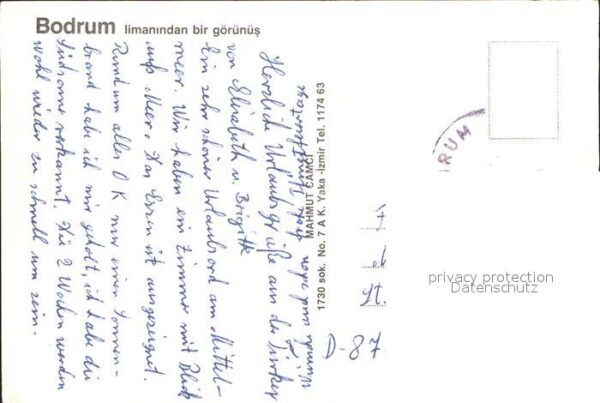 Bodrum limanından bir görünüş
Herzliche Urlaubsgrüße aus der Türkei
von Elisabeth u. Brigitte
Ein sehr schöner Urlaubsort am Mittel-
meer. Wir haben ein Zimmer mit Blick
aufs Meer. Das Essen ist ausgezeignet.
Rundum alles O K nur einen Sonnen-
brand habe ich mir geholt, ich habe die
Südsonne verkannt. Die 2 Wochen werden
wohl wieder zu schnell um sein.
MAHMUT CAMCI
1730 sok. No. 7 A K. Yaka -İzmir Tel. 1174 63
RUM
F
St.
D-87
privacy protection
Datenschutz